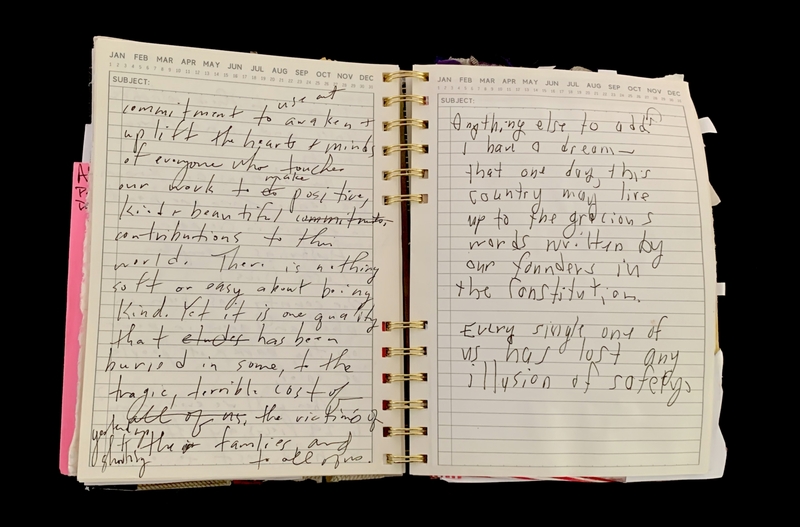 JAN FEB MAR APR MAY JUN JUL AUG SEP OCT NOV DEC
SUBJECT:
use art
commitment to awaken +
uplift the hearts + minds
of everyone who touches
make
our work to do positive,
kind + beautiful commitments
contributions to this
world. There is nothing
soft or easy about being
kind. Yet it is one quality
that eludes has been
buried in some, to the
tragic, terrible cost of
all of us, the victims of
yesterday's
shooting
the families, and
to all of us.
JAN FEB MAR APR MAY JUN JUL AUG SEP OCT NOV DEC
SUBJECT:
Anything else to add?
I have a dream—
that one day, this
country may live
up to the gracious
words written by
our founders in
the Constitution.
Every single one of
us has lost any
illusion of safety.